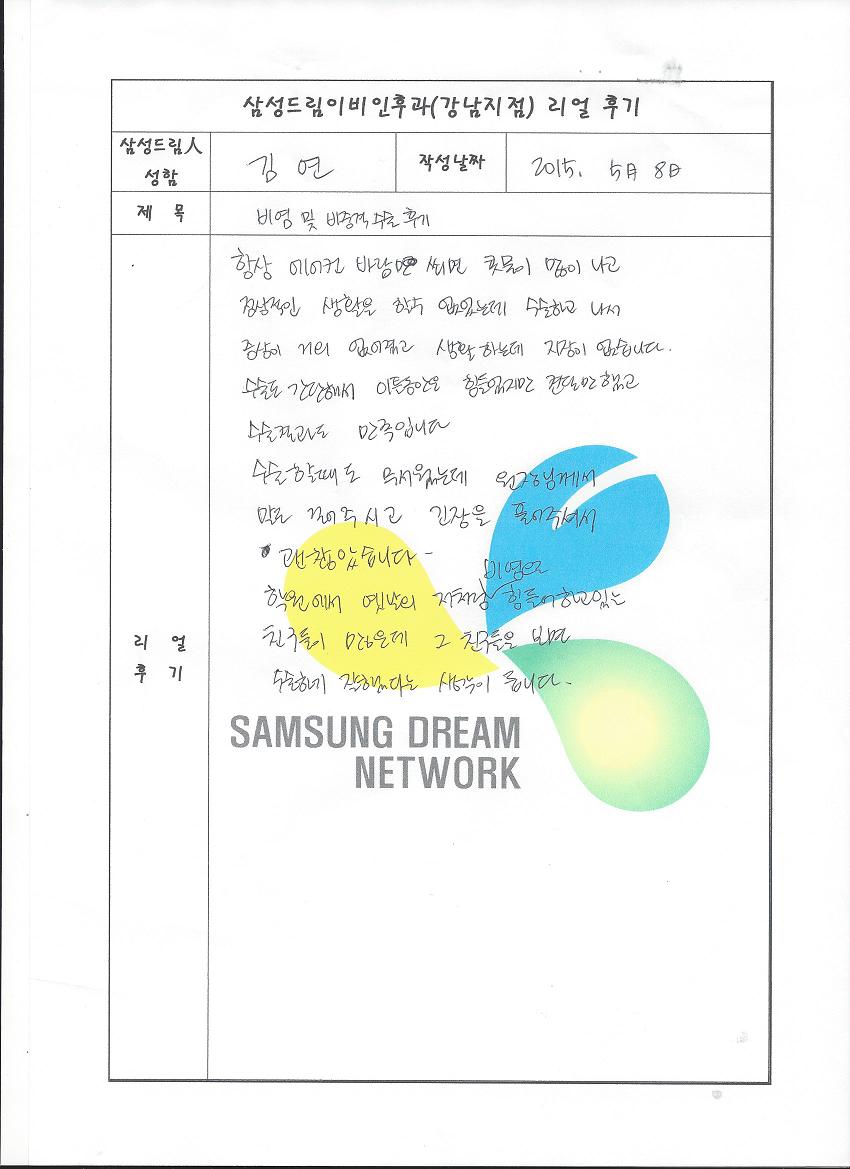 삼성드림이비인후과(강남지점) 리얼 후기
삼성드림人
성함
김 연
작성날짜
2015. 5月 8日
제 목
비염 및 비중격수술 후기
항상 에어컨 바람만 쐬면 콧물이 많이 나고
정상적인 생활을 할수 없었는데 수술하고 나서
증상이 거의 없어졌고 생활하는데 지장이 없습니다.
수술도 간단해서 이틀동안은 힘들었지만 견딜만했고
수술결과도 만족입니다
수술할때도 무서웠는데 원장님께서
말도 걸어주시고 긴장을 풀어주셔서
괜찮았습니다-
비염으로
학원에서 옛날의 저처럼 힘들어하고있는
친구들이 많은데 그 친구들을 보면
수술하게 잘했다는 생각이 듭니다.
리 얼
후 기
SAMSUNG DREAM
NETWORK